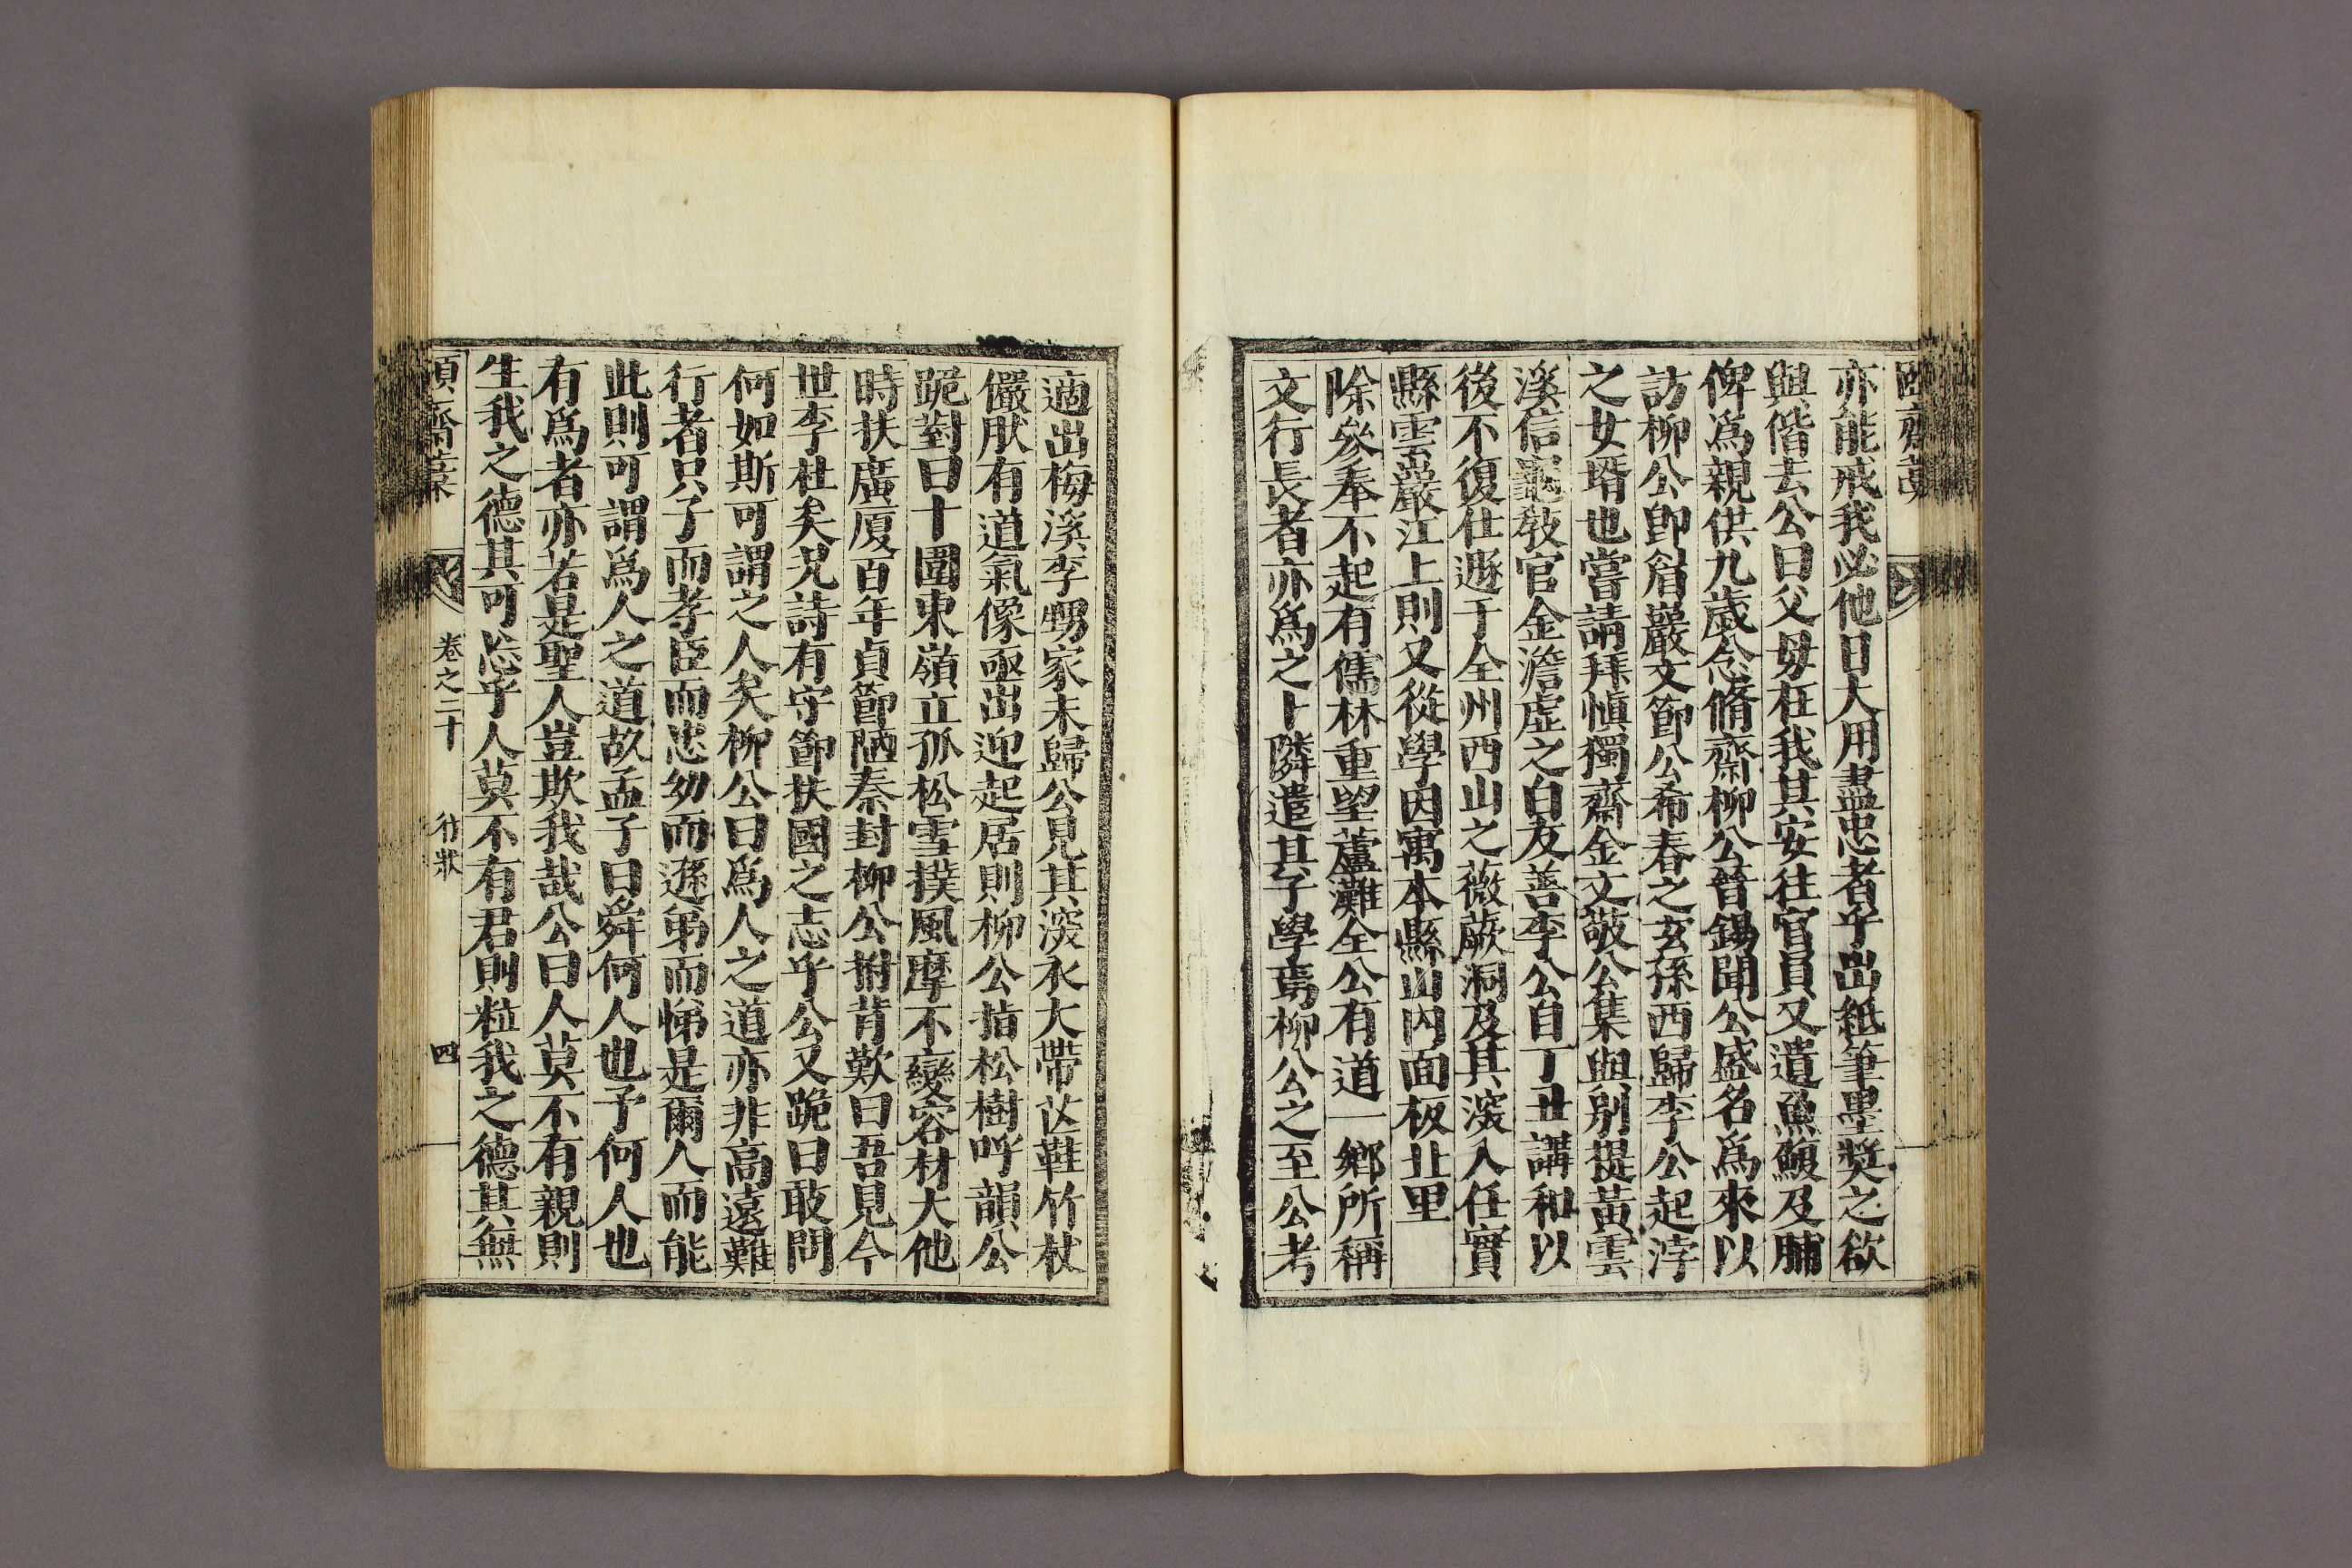 亦能戒我必他日大用盡忠者乎出紙筆墨奬之欲
與偕去公曰父母在我其安往官員又遺魚鰒及脯
俾爲親供九歲念脩齋柳公晉錫聞公盛名爲來以
訪柳公卽眉巖文節公希春之玄孫西歸李公起浡
之女壻也嘗請拜愼獨齋金文敬公集與別提黃雲
溪信龜敎官金澹虛之白友善李公自丁丑講和以
後不復仕遯于全州西山之薇蕨洞及其深入任實
縣雲巖江上則又從學因寓本縣山內面板止里
除參奉不起有儒林重望蘆灘全公有道一鄕所稱
文行長者亦爲之卜隣遣其子學焉柳公之至公考
適出梅溪李甥家未歸公見其深衣大帶芒鞋竹杖
儼肰有道氣像亟出迎起居則柳公指松樹呼韻公
跪對曰十圍東嶺立孤松雪撲風摩不變容材大他
時扶廣厦百年貞節陋秦封柳公拊背歎曰吾見今
世李杜矣況詩有守節扶國之志乎公又跪曰敢問
何如斯可謂之人矣柳公曰爲人之道亦非高遠難
行者只子而孝臣而忠幼而遜弟而悌是爾人而能
此則可謂爲人之道故孟子曰舜何人也予何人也
有爲者亦若是聖人豈欺我哉公曰人莫不有親則
生我之德其可忘乎人莫不有君則粒我之德其無
頤齋藁
卷之二十
行狀
四